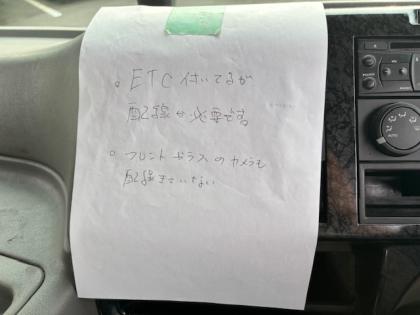 。ETC 付いてるが
配線は必要です。
。フロントガラスのカメラも
配線きていない